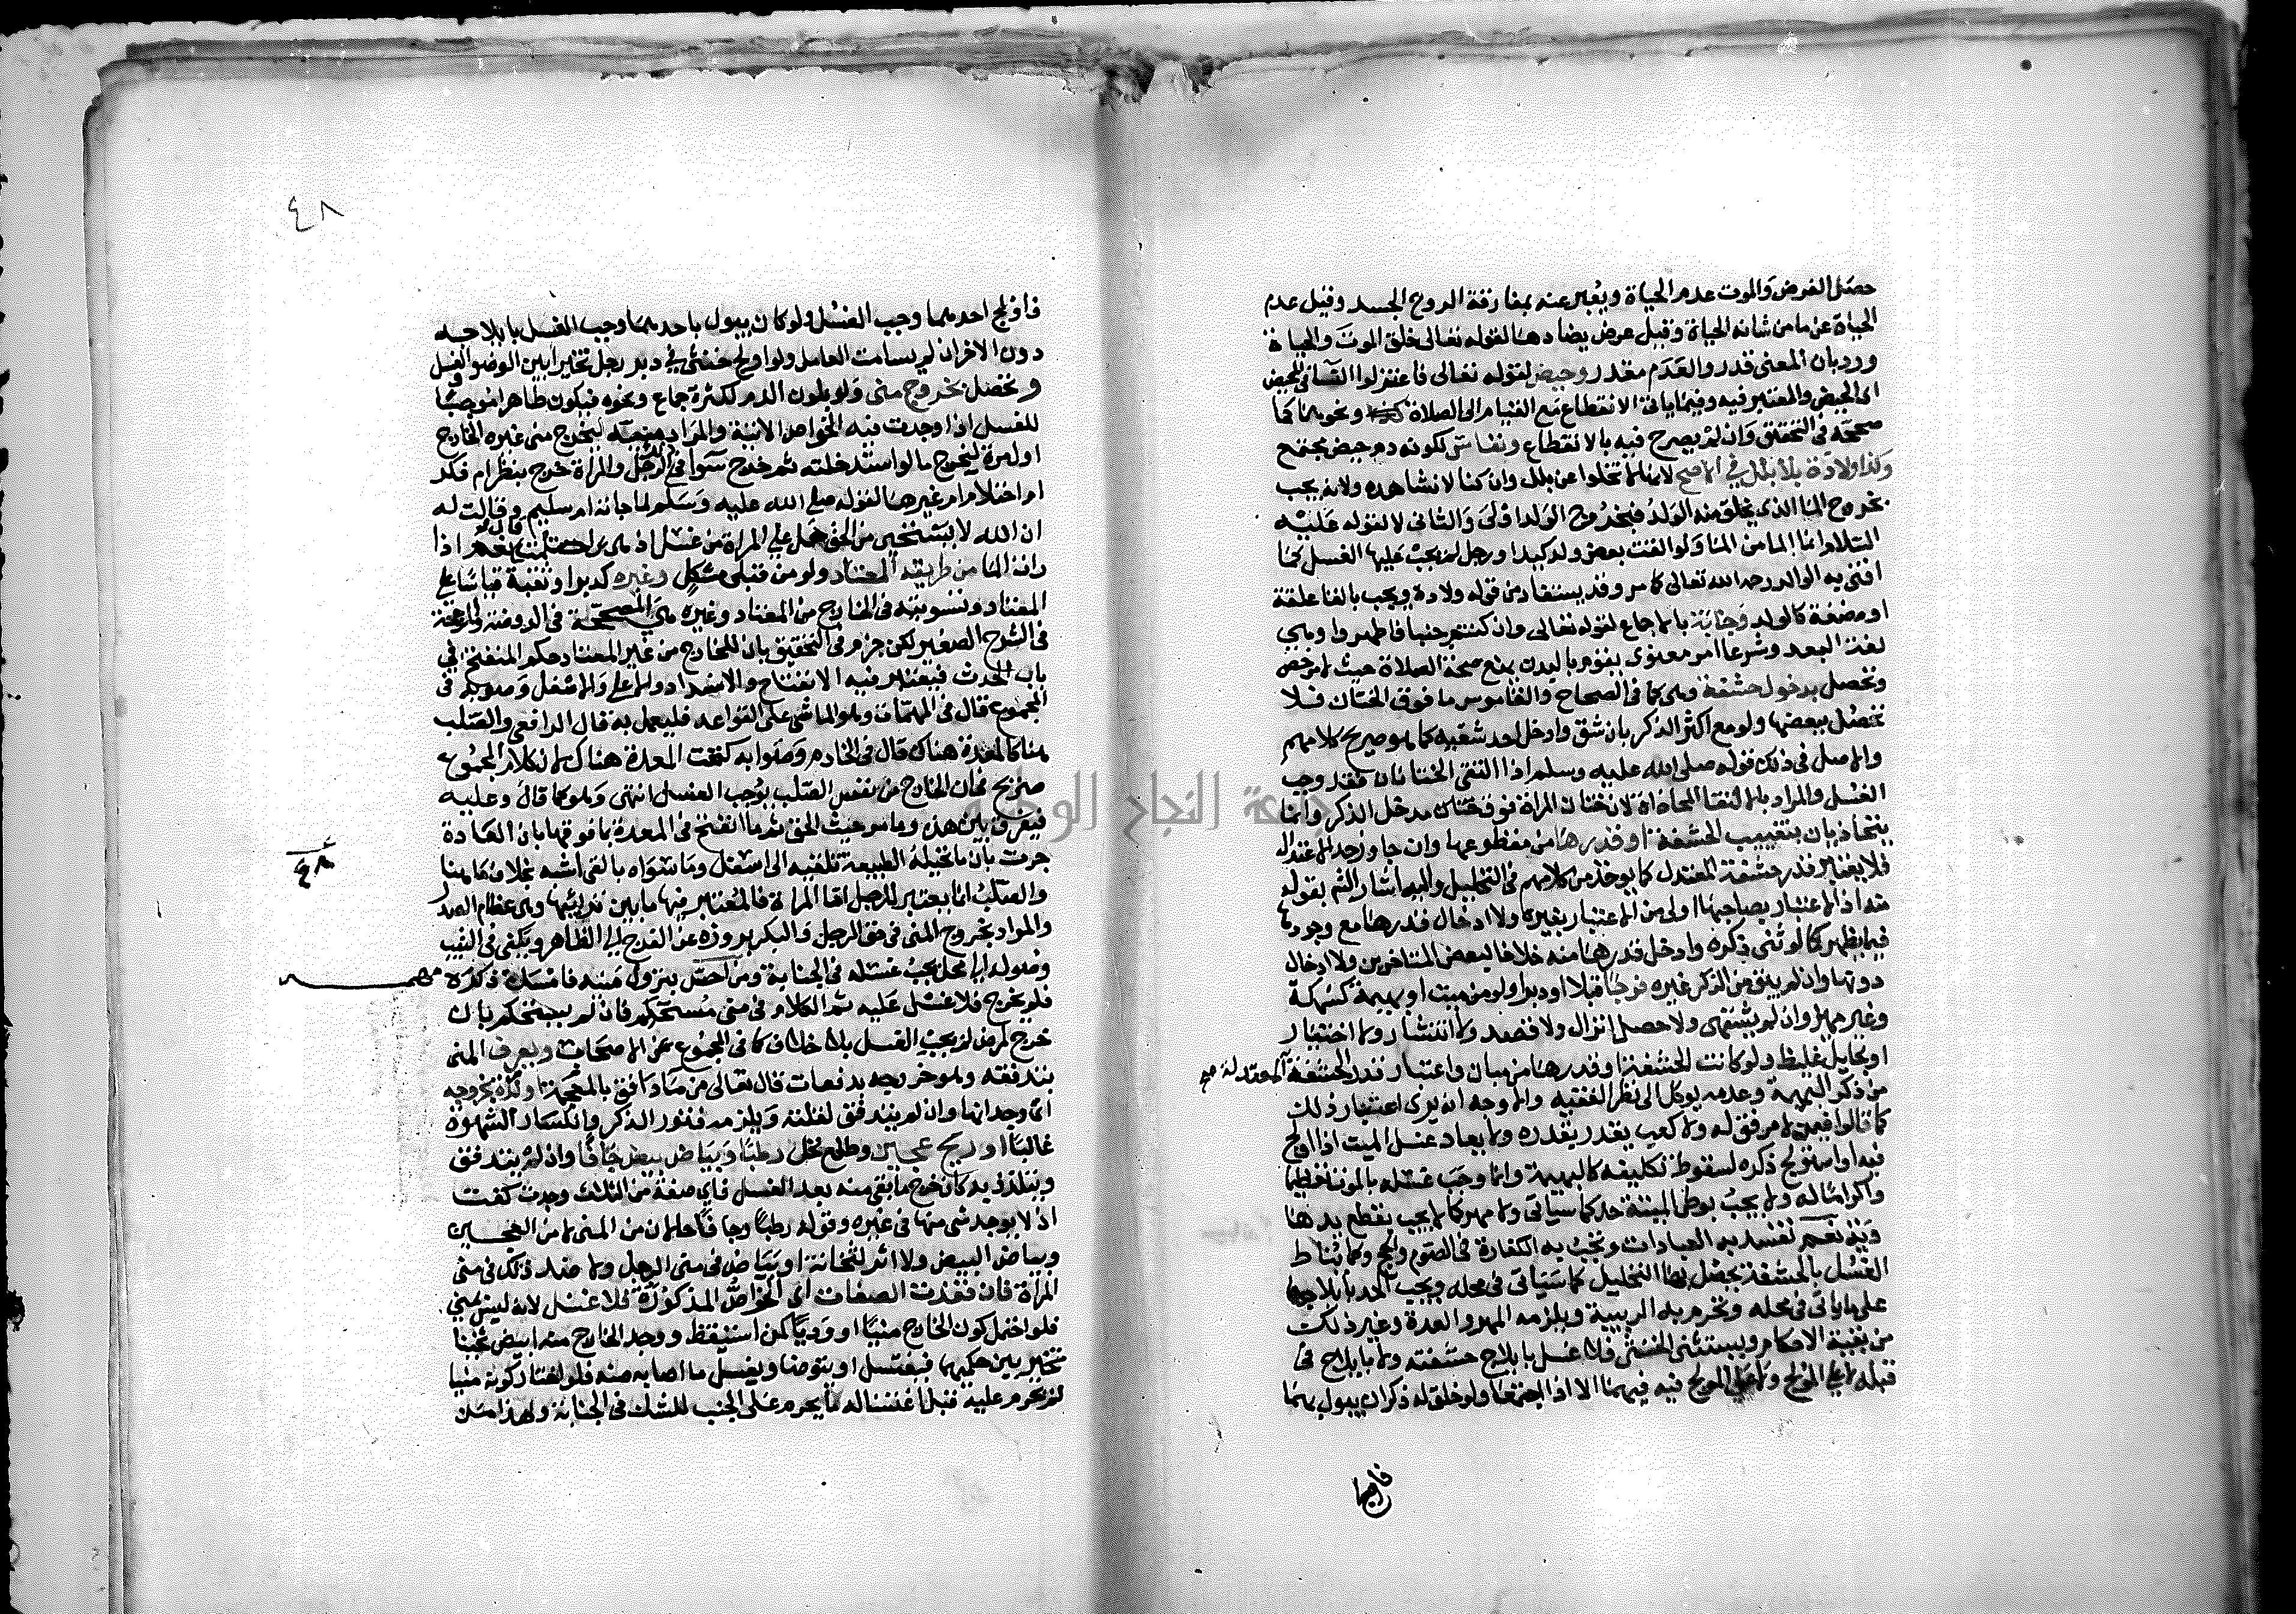 حصل الغرض والموت عدم الحياة ويعبر عنه بمفارقة الروح الجسد وقيل عدم
الحياة عن ما من شانه الحياة وقيل عرض يضادها لقوله تعالى خلق الموت والحياة
ورد بان المعنى قدر والعدم مقدر وحيض لقوله تعالى فاعتزلوا النساء في المحيض
اى الحيض والمعتبر فيه وفيما ياتى الانقطاع مع القيام الى الصلاة ونحوها كما
صححه في التحقيق وان لم يصرح فيه بالانقطاع ونفاس لكونه دم حيض مجتمع
وكذا ولادة بلا بلل في الاصح لانها لا تخلوا عن بلل وان كنا لا نشاهده ولانه يجب
بخروج الماء الذى يخلق منه الولد فبخروج الولد اولى والثانى لا لقوله عليه
السلام انما الما من الما ولو القت بعض ولد كيد او رجل لم يجب عليها الغسل كما
افتى به الوالد رحمه الله تعالى كما مر وقد يستفاد من قوله ولادة ويجب بالقا علقة
او مضغة كالولد وجنابة بالاجماع لقوله تعالى وان كنتم جنبا فاطهروا وهى
لغة البعد وشرعا امر معنوى يقوم بالبدن يمنع صحة الصلاة حيث لا مرخص
وتحصل بدخول حشفة وهى كما في الصحاح والقاموس ما فوق الختان فلا
تحصل ببعضها ولو مع اكثر الذكر بان شق وادخل احد شقيه كما هو صريح كلامهم
والاصل في ذلك قوله صلى الله عليه وسلم اذا التقى الختانان فقد وجب
الغسل والمراد بالالتقا المحاذاة لان ختان المراة فوق ختان مدخل الذكر وانما
يتحاذيان بتغييب الحشفة او قدرها من مقطوعها وان جاوز حد الاعتدال
فلا يعتبر قدر حشفة المعتدل كما يوخذ من كلامهم في التحليل واليه اشار الشم بقوله
شه اذ الاعتبار بصاحبها اولى من الاعتبار بغيره ولا ادخال قدرها مع وجودها
فيما يظهر كما لو ثنى ذكره وادخل قدرها منه خلافا لبعض المتاخرين ولا ادخال
دونها وان لم يبق من الذكر غيره فرجا قبلا او دبرا ولو من ميت او بهيمة كسمكة
وغير مميز وان لم يشتهى ولا حصل انزال ولا قصد ولا انتشار ولا اختيار
او بحايل غليظ ولو كانت الحشفة او قدرها من مبان واعتبار قدر الحشفة المعتدلة صح
من ذكر البهيمة وعدمه يوكل الى نظر الفقيه والاوجه انه يرى اعتبار ذلك
كما قالوا فيمن لا مرفق له ولا كعب يقدر بقدره ولا يعاد غسل الميت اذا اولج
فيه او استولج ذكره لسقوط تكليفه كالبهيمة وانما وجب غسله بالموت تنظيفا
واكراما له ولا يجب بوطى الميتة حد كما سياتى ولا مهر كما لا يجب بقطع يدها
دية نعم تفسد به العبادات وتجب به الكفارة في الصوم والحج وكما يناط
الغسل بالحشفة يحصل بها التحليل كما سياتى في محله ويجب الحد بايلاجها
على ما ياتى في محله وتحرم به الربيبة ويلزمه المهر والعدة وغير ذلك
من بقية الاحكام ويستثنى الخنثى فلا غسل بايلاج حشفته ولا بايلاج في
قبله لا على المولج ولا على المولج فيه فيهما الا اذا اجتمعا ولو خلق له ذكران يبول بهما
فاولج
٤٨
فاولج احدهما وجب الغسل ولو كان يبول باحدهما وجب الغسل بايلاجه
دون الاخر ان لم يسامت العامل ولو اولج خنثى في دبر رجل تخير ابين الوضو والغسل
وتحصل بخروج منى ولو بلون الدم لكثرة جماع ونحوه فيكون طاهرا موجبا
للغسل اذا وجدت فيه الخواص الاتية والمراد منيه ليخرج منى غيره الخارج
اول مرة ليخرج ما لو استدخلته ثم خرج سوا في ذلك الرجل والمراة خرج بنظر ام فكر
ام احتلام ام غيرها لقوله صلى الله عليه وسلم لما جاته ام سليم وقالت له
ان الله لا يستحى من الحق هل على المراة من غسل اذا هى احتلمت قال نعم اذا
رات الما من طريقه المعتاد ولو من قبلى مشكل وغيره كدبر او ثقبة قياسا على
المعتاد وتسويته في الخارج من المعتاد وغيره هى المصححة في الروضة والراجحة
في الشرح الصغير لكن جزم في التحقيق بان للخارج من غير المعتاد حكم المنفتح في
باب الحدث فيعتبر فيه الانفتاح والانسداد والاعلى والاسفل وصوبه في
المجموع قال في المهمات وهو الماشى على القواعد فليعمل به قال الرافعى والصلب
هنا كالمعدة هناك قال في الخادم وصوابه كتحت المعدة هناك لان كلام المجموع
صريح بان الخارج من نفس الصلب يوجب الغسل انتهى وهو كما قال وعليه
فيفرق بين هذه وما مر حيث الحق ثم ما انفتح في المعدة بما فوقها بان العادة
جرت بان ما تحيله الطبيعة تلقيه الى اسفل وما سواه بالقى اشبه بخلافه هنا
والصلب انما يعتبر للرجل اما المراة فالمعتبر فيها ما بين ترائبها وهى عظام الصدر
والمراد بخروج المنى في حق الرجل والبكر بروزه عن الفرج الى الظاهر ويكفى في الثيب
وصوله الى محل يجب غسله في الجنابة ومن احس بنزول منيه فامسك ذكره
مهم
فلم يخرج فلا غسل عليه ثم الكلام في منى مستحكم فان لم يستحكم بان
خرج لمرض لم يجب الغسل بلا خلاف كما في المجموع عن الاصحاب ويعرف المنى
بتدفقه وهو خروجه بدفعات قال تعالى من ما دافق بالمعجمة او لذة بخروجه
اى وجدانها وان لم يتدفق لقلته ويلزمه فتور الذكر وانكسار الشهوة
غالبا او ريح عجين وطلع نخل رطبا وبياض بيض جافا وان لم يتدفق
ويتلذذ به كان خرج ما بقى منه بعد الغسل فاى صفة من الثلاث وجدت كفت
اذ لا يوجد شى منها في غيره وقوله رطبا وجافا حالان من المنى لا من العجين
وبياض البيض ولا اثر لثخانة او بياض في منى الرجل ولا ضد ذلك في منى
المراة فان فقدت الصفات اى الخواص المذكورة فلا غسل لانه ليس بمنى
فلو احتمل كون الخارج منيا او وديا كمن استيقظ ووجد الخارج منه ابيض ثخينا
تخير بين حكميهما فيغتسل او يتوضا ويغسل ما اصابه منه فلو اختار كونه منيا
لم يحرم عليه قبل اغتساله ما يحرم على الجنب للشك في الجنابة ولهذا من